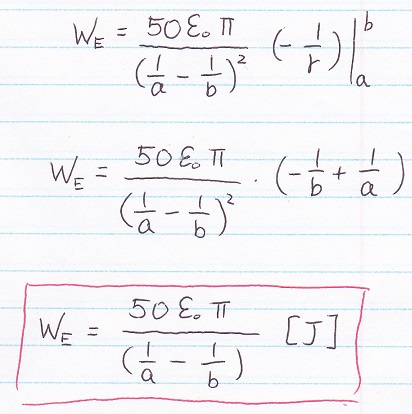 W_E = \frac{50 ε₀ π}{(\frac{1}{a} - \frac{1}{b})^2} (-\frac{1}{r}) |_a^b
W_E = \frac{50 ε₀ π}{(\frac{1}{a} - \frac{1}{b})^2} · (-\frac{1}{b} + \frac{1}{a})
W_E = \frac{50 ε₀ π}{(\frac{1}{a} - \frac{1}{b})} [J]